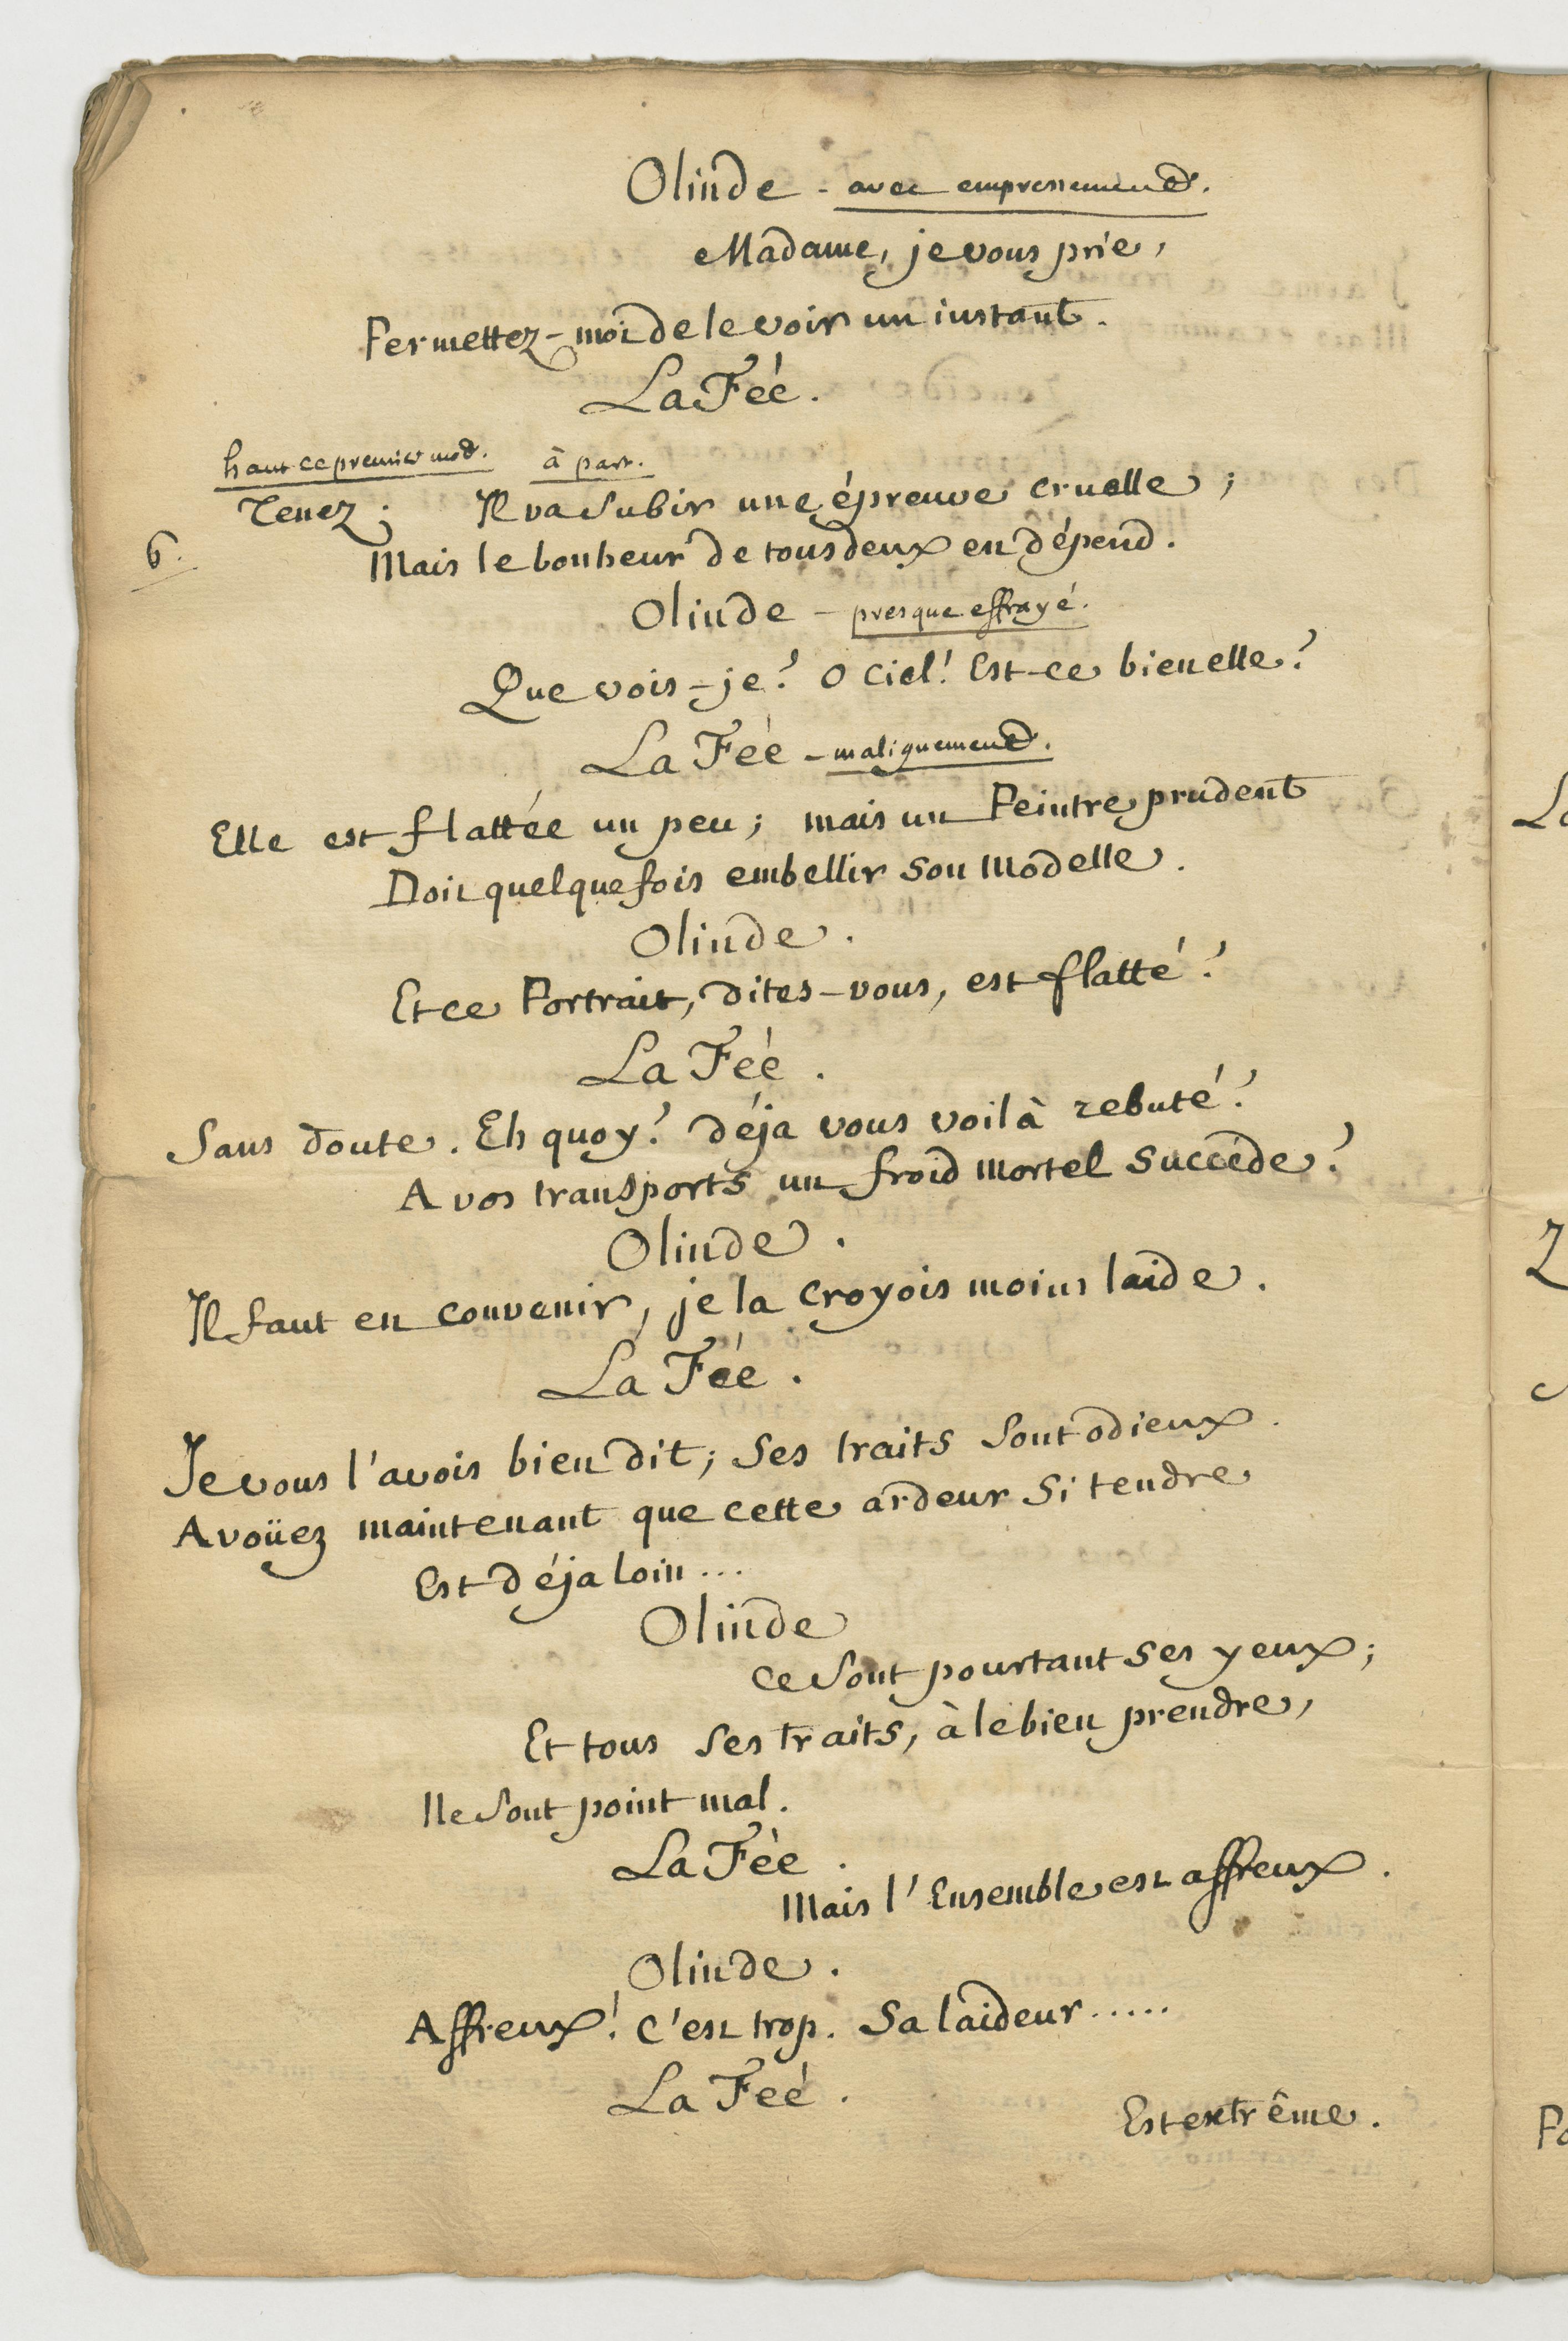 Olinde - avec empressement.
Madame, je vous prie,
Permettez-moi de le voir un instant.
La Fée.
haut ce premier mot. à part.
Tenez. Il va subir une épreuve cruelle ;
6.
Mais le bonheur de tous deux en dépend.
Olinde - presque effrayé.
Que vois-je ? O ciel ! Est-ce bien elle ?
La Fée - malignement.
Elle est flattée un peu ; mais un Peintre prudent
Doit quelquefois embellir son modelle.
Olinde.
Et ce Portrait, dites-vous, est flatté ?
La Fée.
Sans doute. Eh quoy ? déja vous voilà rebuté ?
A vos transports un froid mortel succède ?
Olinde.
Il faut en convenir, je la croyois moins laide.
La Fée.
Je vous l'avois bien dit ; ses traits sont odieux.
Avoüez maintenant que cette ardeur si tendre
Est déja loin...
Olinde
ce sont pourtant ses yeux ;
Et tous ses traits, à le bien prendre,
Ne sont point mal.
La Fée.
Mais l'Ensemble est affreux.
Olinde.
Affreux ! c'est trop. Sa laideur.....
La Feé.
Est extrême.